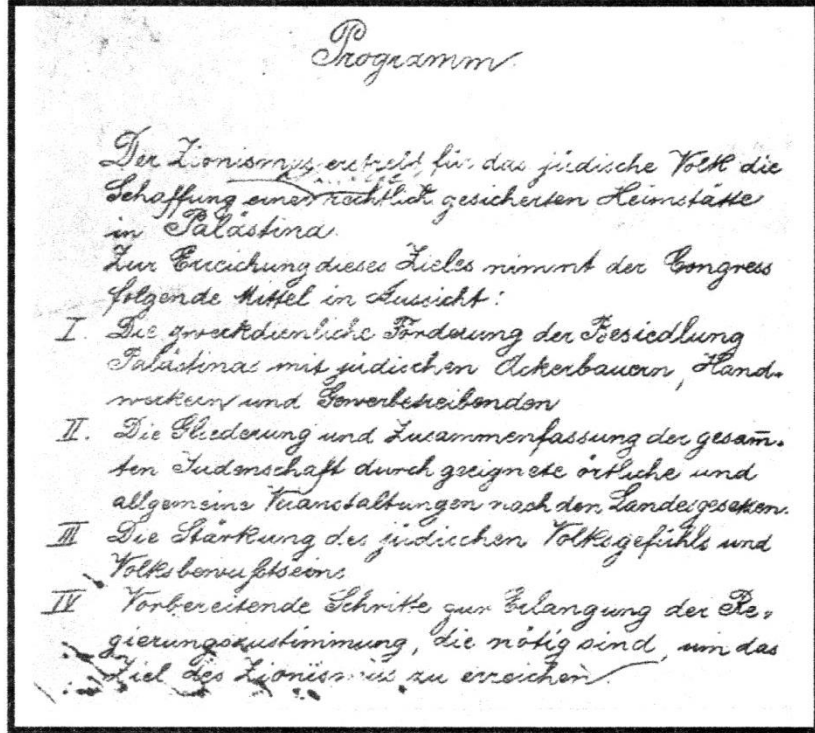 Programm
Der Zionismus erstrebt für das jüdische Volk die
Schaffung einer rechtlich gesicherten Heimstätte
in Palästina.
Zur Erreichung dieses Zieles nimmt der Congress
folgende Mittel in Aussicht:
I. Die zweckdienliche Förderung der Besiedlung
Palästinas mit jüdischen Ackerbauern, Hand-
werkern und Gewerbetreibenden
II. Die Gliederung und Zusammenfassung der gesam̄-
ten Judenschaft durch geeignete örtliche und
allgemeine Veranstaltungen nach den Landesgesetzen.
III Die Stärkung des jüdischen Volksgefühls und
Volksbewußtseins
IV Vorbereitende Schritte zur Erlangung der Re-
gierungszustimmung, die nötig sind, um das
Ziel des Zionismus zu erreichen.